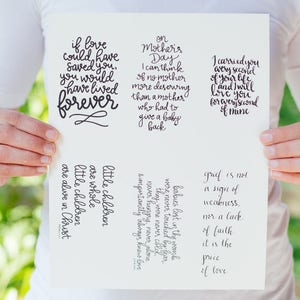 if love
could have
saved you,
you would
have lived
forever
on
Mother's
Day
I can think
of no mother
more deserving
than a mother
who had to
give a baby
back
I carried you
every second
of your life
and I will
love you
for every second
of mine
little children
are whole
little children
are alive in Christ
babies lost in the womb
were never touched by fear,
never cold,
never hungry, never alone
& importantly always knew love
grief is not
a sign of
weakness,
nor a lack
of faith
it is the
price
of love